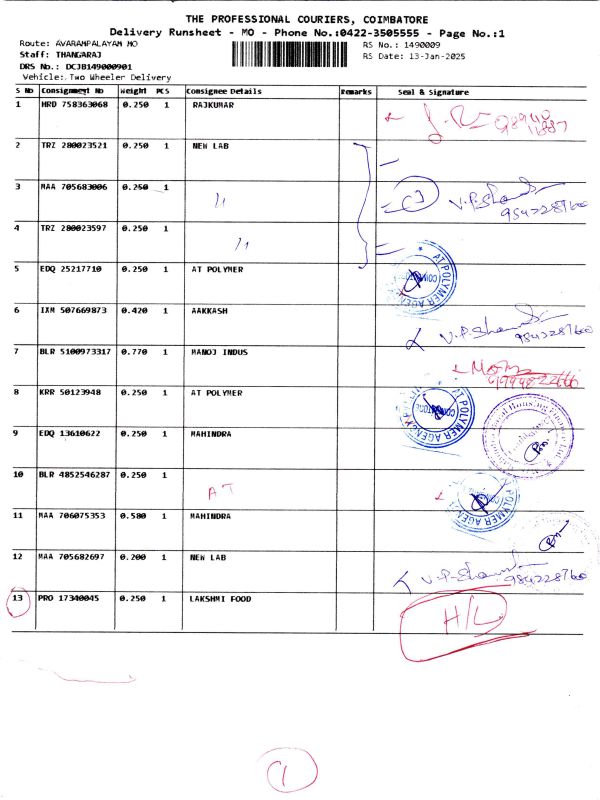 THE PROFESSIONAL COURIERS, COIMBATORE
Delivery Runsheet - MO - Phone No.:0422-3505555 - Page No.:1
Route: AVARAMPALAYAM MO RS No.: 1490009
Staff: THANGARAJ RS Date: 13-Jan-2025
DRS No.: DCJB149000901
Vehicle: Two Wheeler Delivery
S No Consignment No Weight PCS Consignee Details Remarks Seal & Signature
1 HRD 758363068 0.250 1 RAJKUMAR
2 TRZ 280023521 0.250 1 NEW LAB
3 MAA 705683006 0.250 1 〃
9547228760
4 TRZ 280023597 0.250 1 〃
5 EDQ 25217710 0.250 1 AT POLYMER
AT POLYMER AGENCY
COIMBATORE
6 IXM 507669873 0.420 1 AAKKASH
9547228760
7 BLR 5100973317 0.770 1 MANOJ INDUS
8 KRR 50123948 0.250 1 AT POLYMER
AT POLYMER AGENCY
COIMBATORE
9 EDQ 13610622 0.250 1 MAHINDRA
10 BLR 4852546287 0.250 1 AT
AT POLYMER AGENCY
11 MAA 706075353 0.580 1 MAHINDRA
12 MAA 705682697 0.200 1 NEW LAB
9547228760
13 PRO 17340045 0.250 1 LAKSHMI FOOD H/L
1